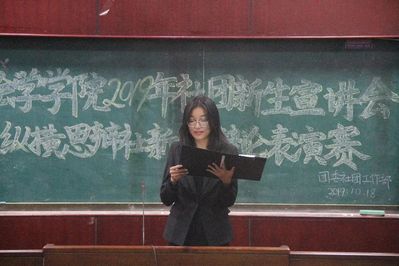 学学院2019年社团新生宣讲会
纵横思师社新 论表演赛
团委社团工作部
2019.10.18